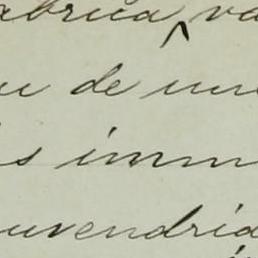 abrica va
u de un
s imm
uvendrid